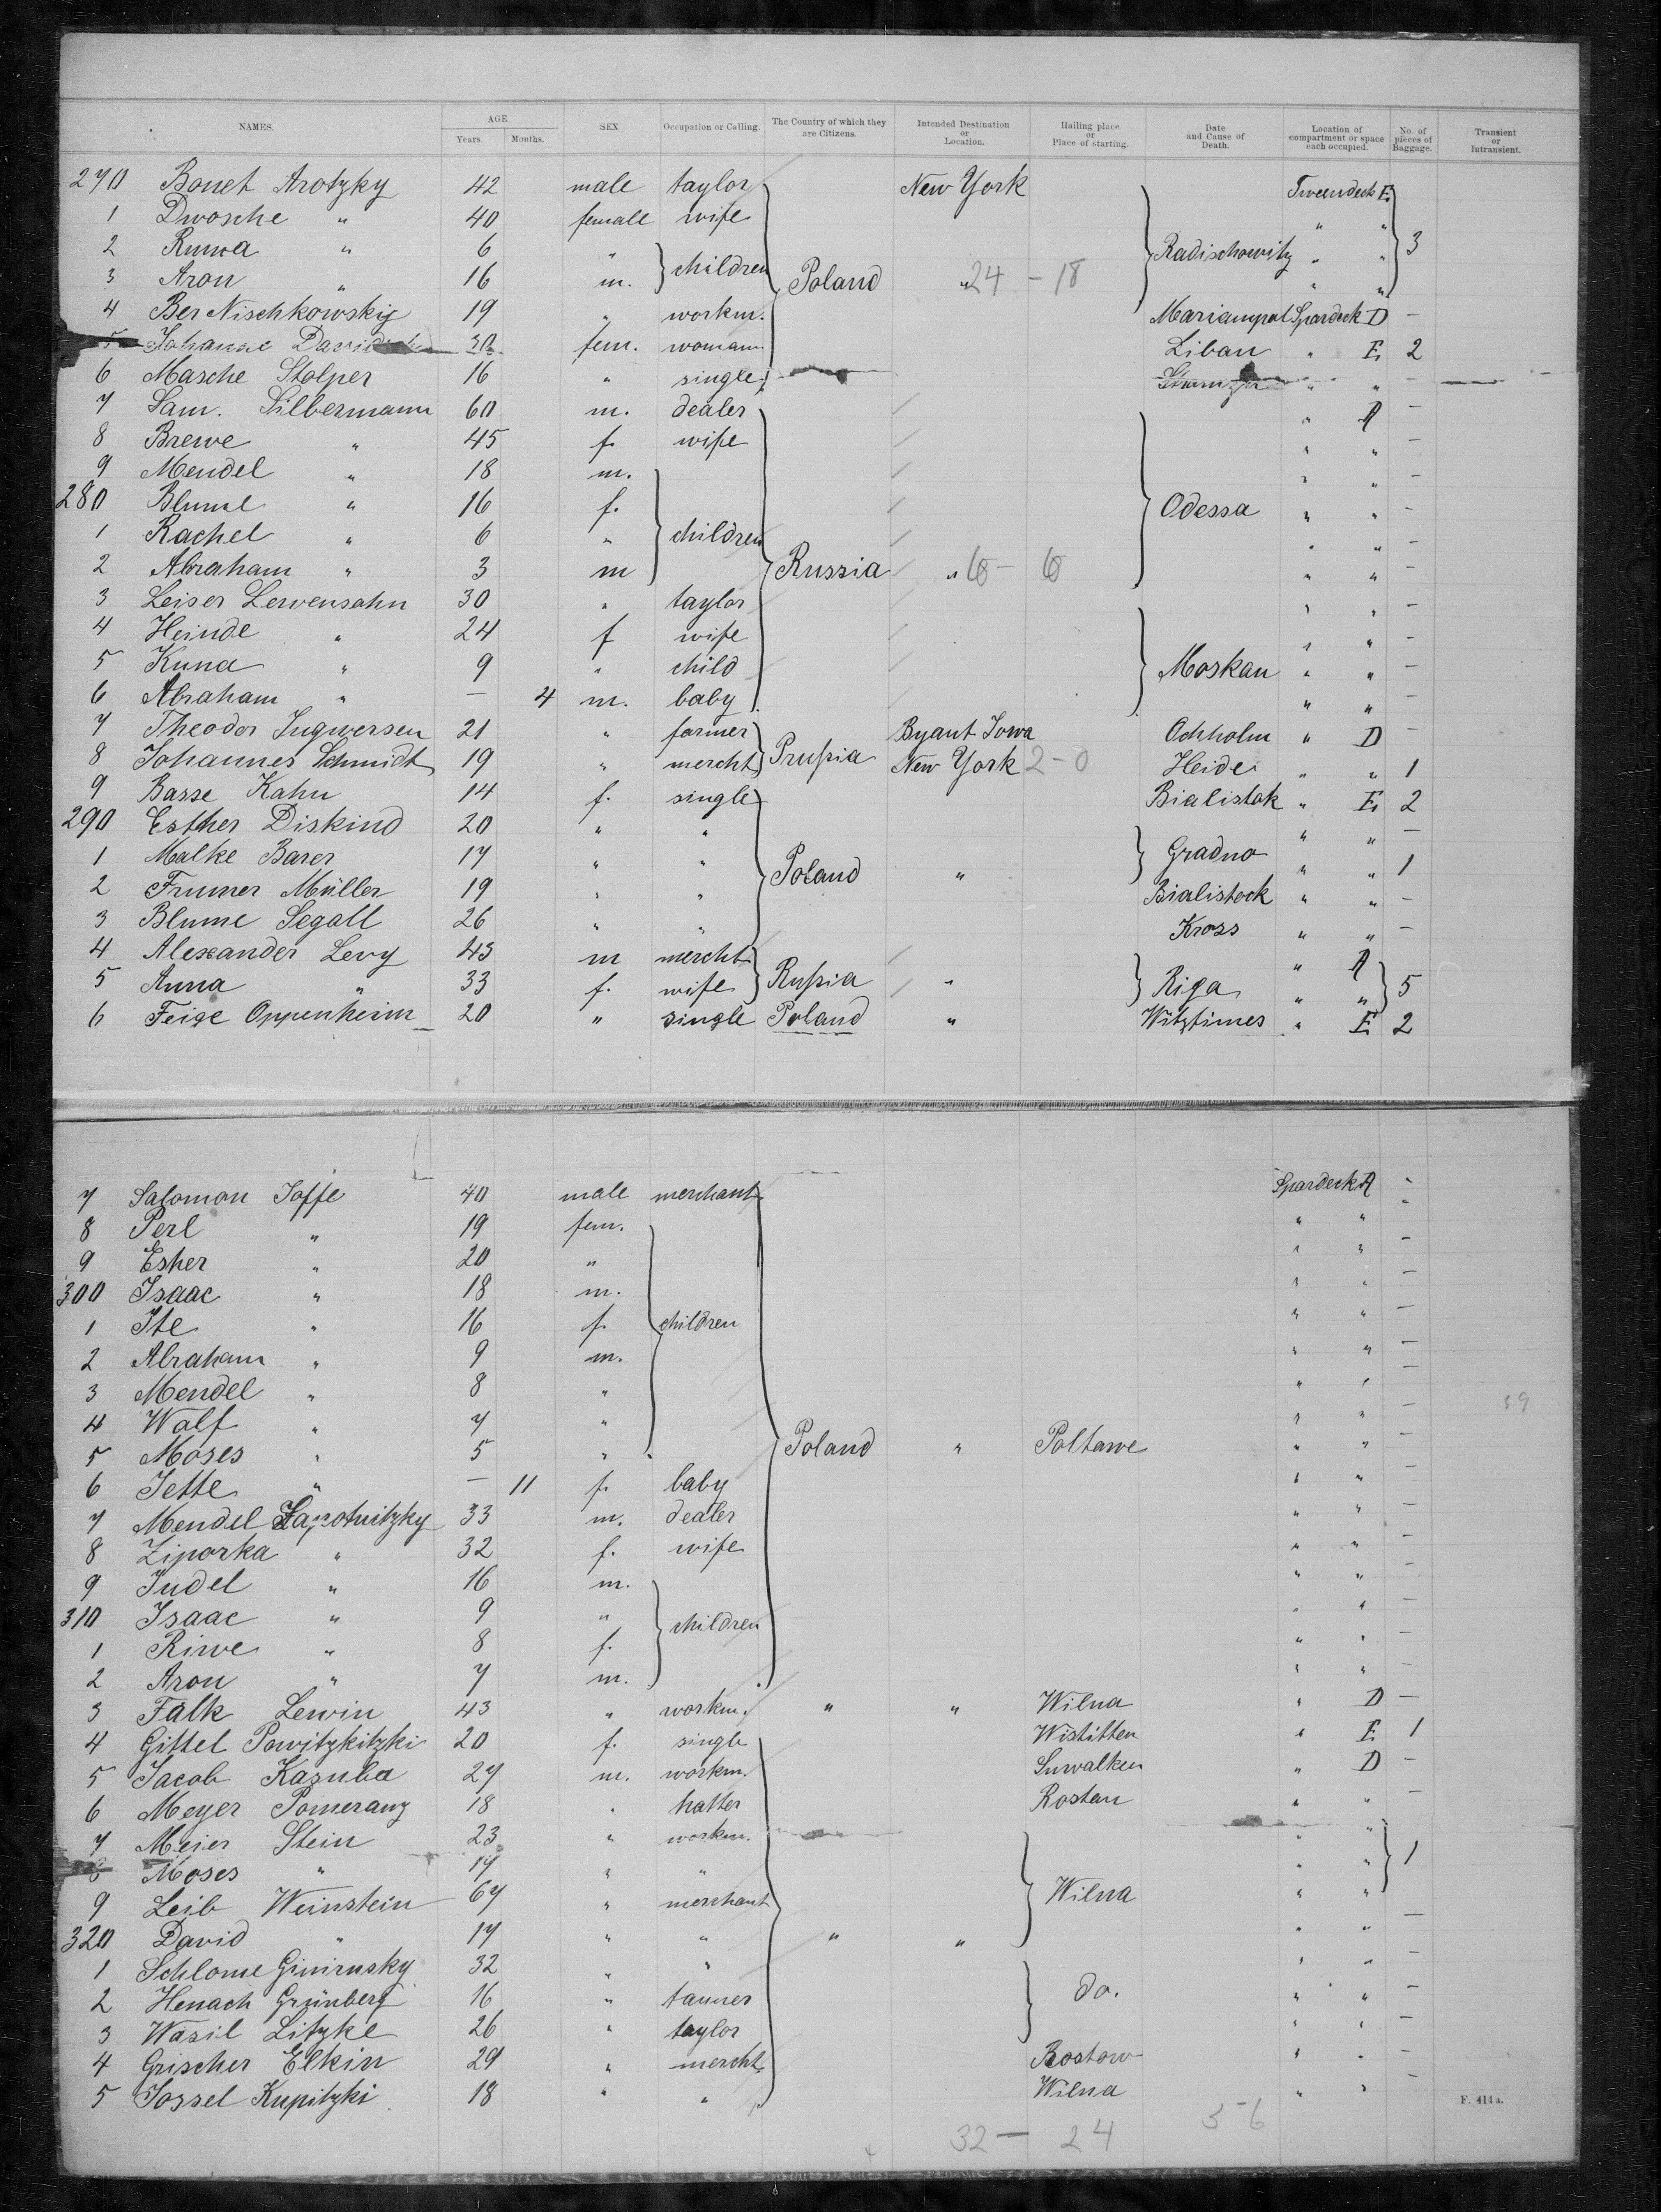 NAMES. AGE SEX Occupation or Calling. The Country of which they are Citizens. Intended Destination or Location. Hailing place or Place of starting. Date and Cause of Death. Location of compartment or space each occupied. No. of pieces of Baggage. Transient or Intransient.
Years. Months.
270 Bonet Arotzky 42 male taylor New York Tweendeck E
1 Dwosche " 40 female wife " "
2 Ruwa " 6 " children Radischowitz " " 3
3 Aron " 16 m. Poland " 24 - 18 " "
4 Ber Nischkowskij 19 " workm. Mariampol Spardeck D -
5 Johanne 30 fem. woman Libau " E 2
6 Masche Stolper 16 " single " " -
7 Sam. Silbermann 60 m. dealer " A -
8 Brewe " 45 f. wife " " -
9 Mendel " 18 m. " " -
280 Blume " 16 f. Odessa " " -
1 Rachel " 6 " children " " -
2 Abraham " 3 m Russia " " " -
3 Leiser Lewensahn 30 " taylor " " -
4 Heinde " 24 f wife " " -
5 Kuna " 9 " child Moskau " " -
6 Abraham " - 4 m. baby " " -
7 Theodor Ingwersen 21 " farmer Byant Iowa Ochholm " D -
8 Johannes Schmidt 19 " mercht Prussia New York 2 - 0 Heide " " 1
9 Basse Kahn 14 f. single Bialistok " E 2
290 Esther Diskind 20 " " " " -
1 Malke Barer 17 " " Poland " Gradno " " 1
2 Frumer Müller 19 " " Bialistock " " -
3 Blume Segall 26 " " Kross " " -
4 Alexander Levy 43 m mercht " A
5 Anna " 33 f. wife Russia " Riga " " 5
6 Feige Oppenheim 20 " single Poland " Witztimes " E 2
7 Salomon Joffe 40 male merchant Spardeck A -
8 Perl " 19 fem. " " -
9 Esher " 20 " " " -
300 Isaac " 18 m. " " -
1 Ite " 16 f. children " " -
2 Abraham " 9 m. " " -
3 Mendel " 8 " " " -
4 Wolf " 7 " " " -
5 Moses " 5 " Poland " Poltawe " " -
6 Jette " - 11 f. baby " " -
7 Mendel 33 m. dealer " " -
8 Ziporka " 32 f. wife " " -
9 Judel " 16 m. " " -
310 Isaac " 9 " children " " -
1 Riwe " 8 f. " " -
2 Aron " 7 m. " " -
3 Falk Lewin 43 " workm. " " Wilna " D -
4 Gittel Powitzkitzki 20 f. single Wistitten " E 1
5 Jacob Kasuba 27 m. workm. Suwalken " D -
6 Meyer Pomeranz 18 " hatter Rostau " " -
7 Meier Stein 23 " workm. " "
8 Moses " 17 " " " " 1
9 Leib Weinstein 67 " merchant Wilna " "
320 David " 17 " " " " " " -
1 Schlome 32 " " " " -
2 Henach Grünberg 16 " tanner do. " " -
3 Wasil Litzke 26 " taylor " " -
4 Grischer Elkin 29 " mercht. Rostow " " -
5 Jossel Kupitzki 18 " " Wilna " " -
F. 414a.
32 - 24 56